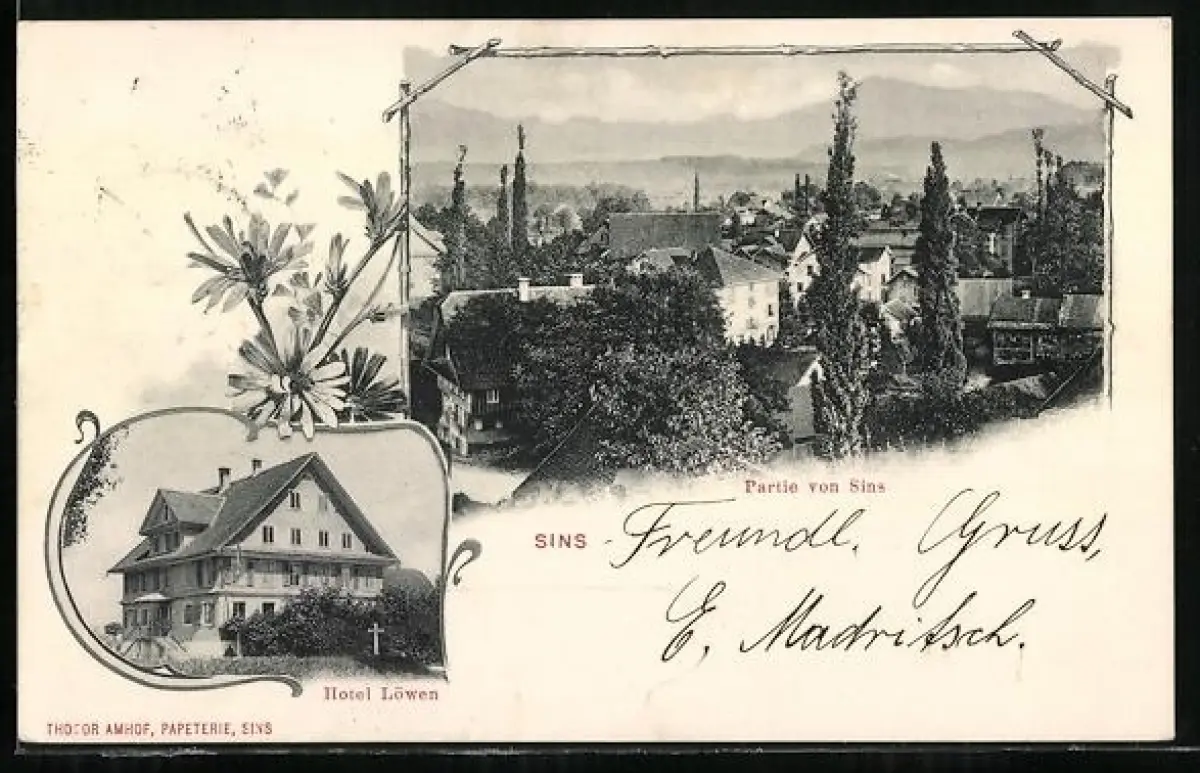 Partie von Sins
SINS
Freundl. Gruss,
E. Madritsch.
Hotel Löwen
THODOR AMHOF, PAPETERIE, SINS